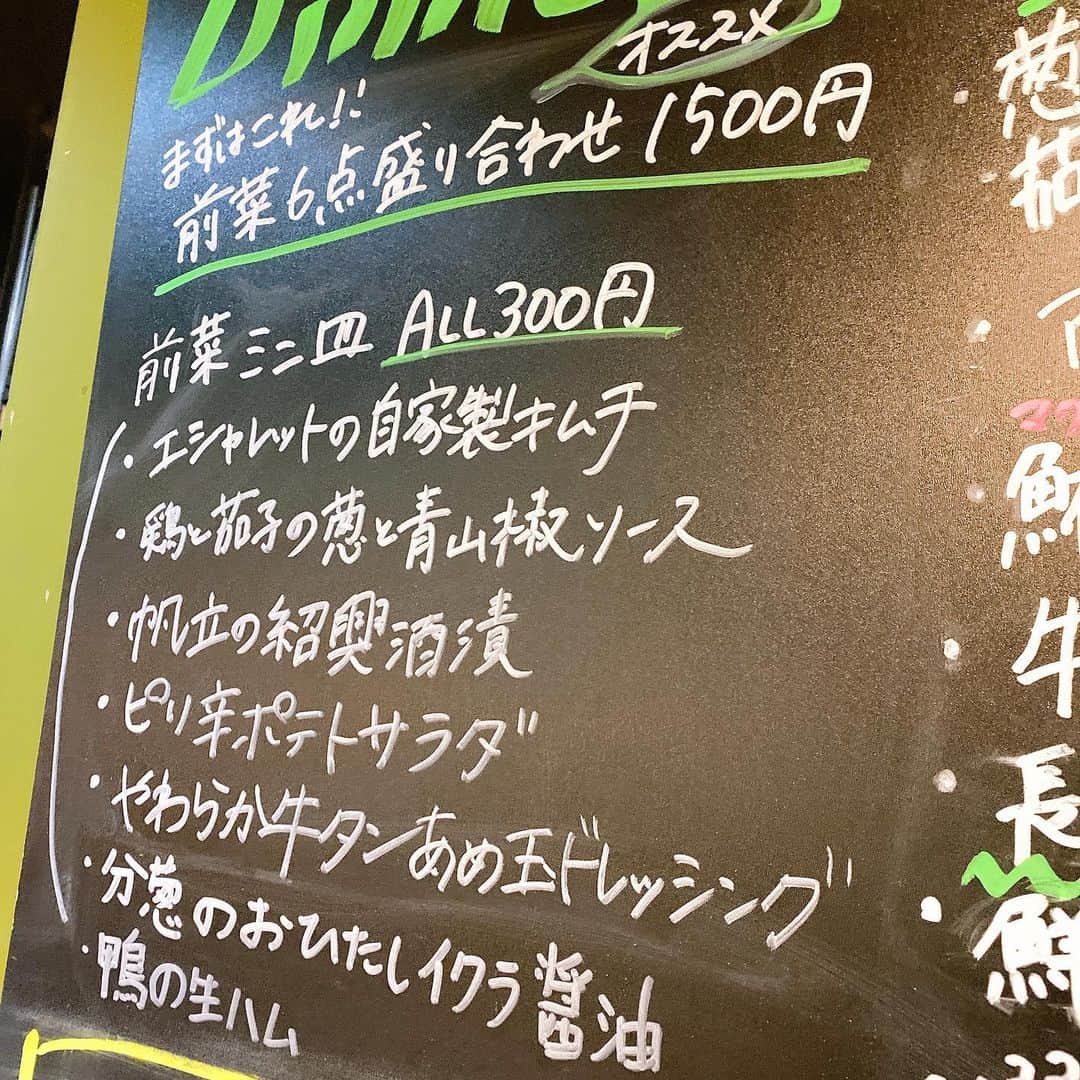 オススメ
まずはこれ!!
前菜6点盛り合わせ 1500円
前菜ミニ皿 ALL300円
・エシャレットの自家製キムチ
・鶏と茄子の葱と青山椒ソース
・帆立の紹興酒漬
・ピリ辛ポテトサラダ
・やわらか牛タンあめ玉ドレッシング
・分葱のおひたしイクラ醤油
・鴨の生ハム
・葱
・茄
・牛
・長